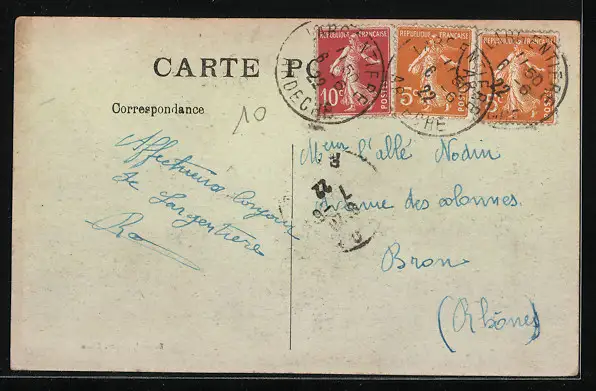 CARTE PO
Correspondance
10
REPUBLIQUE FRANÇAISE
10c
POSTES
REPUBLIQUE FRANÇAISE
5c
POSTES
REPUBLIQUE FRANÇAISE
LARGENTIERE
11 50
6 -6
22
ARDECHE
Affectueux bonjour
de Largentière
Meur l'abbé Nodin
Avenue des colonnes
Bron
(Rhône)